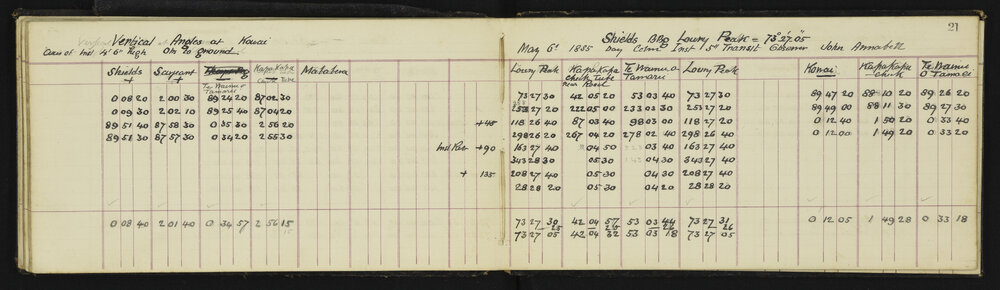 21
Vertical Angles at Kawai
Axis of Inst 4' 6" high Obs to ground
Shields Brg Lowry Peak = 73° 27' 05"
May 6th 1885 Day Calm Inst 5" Transit Observer John Annabell
Shields Sargeant Kapakapa Matahera
+ + Tube
Te Wamu o Tamaru
0 08 20 2 00 30 89 24 20 87 02 30
0 09 30 2 02 10 89 25 40 87 04 20
89 51 40 87 58 30 0 35 30 2 56 20
89 51 30 87 57 30 0 34 20 2 55 30
0 08 40 2 01 40 0 34 57 2 56 15
Lowry Peak Kapakapa Te Wamu o Tamaru Lowry Peak Kawai Kapakapa Te Wamu o Tamaru
near Road
73 27 30 42 05 20 53 03 40 73 27 30 89 47 20 88 10 20 89 26 20
253 27 20 222 05 00 233 03 30 253 27 20 89 49 00 88 11 30 89 27 30
+45 118 26 40 87 03 40 98 03 00 118 27 20 0 12 40 1 50 20 0 33 40
298 26 20 267 04 20 278 02 40 298 26 40 0 12 00 1 49 20 0 33 20
+90 163 27 40 04 50 03 40 163 27 40
343 28 30 05 30 04 30 343 27 40
+ 135 208 27 40 05 30 04 30 208 27 40
28 28 20 05 30 04 20 28 28 20
73 27 30 42 04 57 53 03 44 73 27 31 0 12 05 1 49 28 0 33 18
25 25 26 26
73 27 05 42 04 32 53 03 18 73 27 05